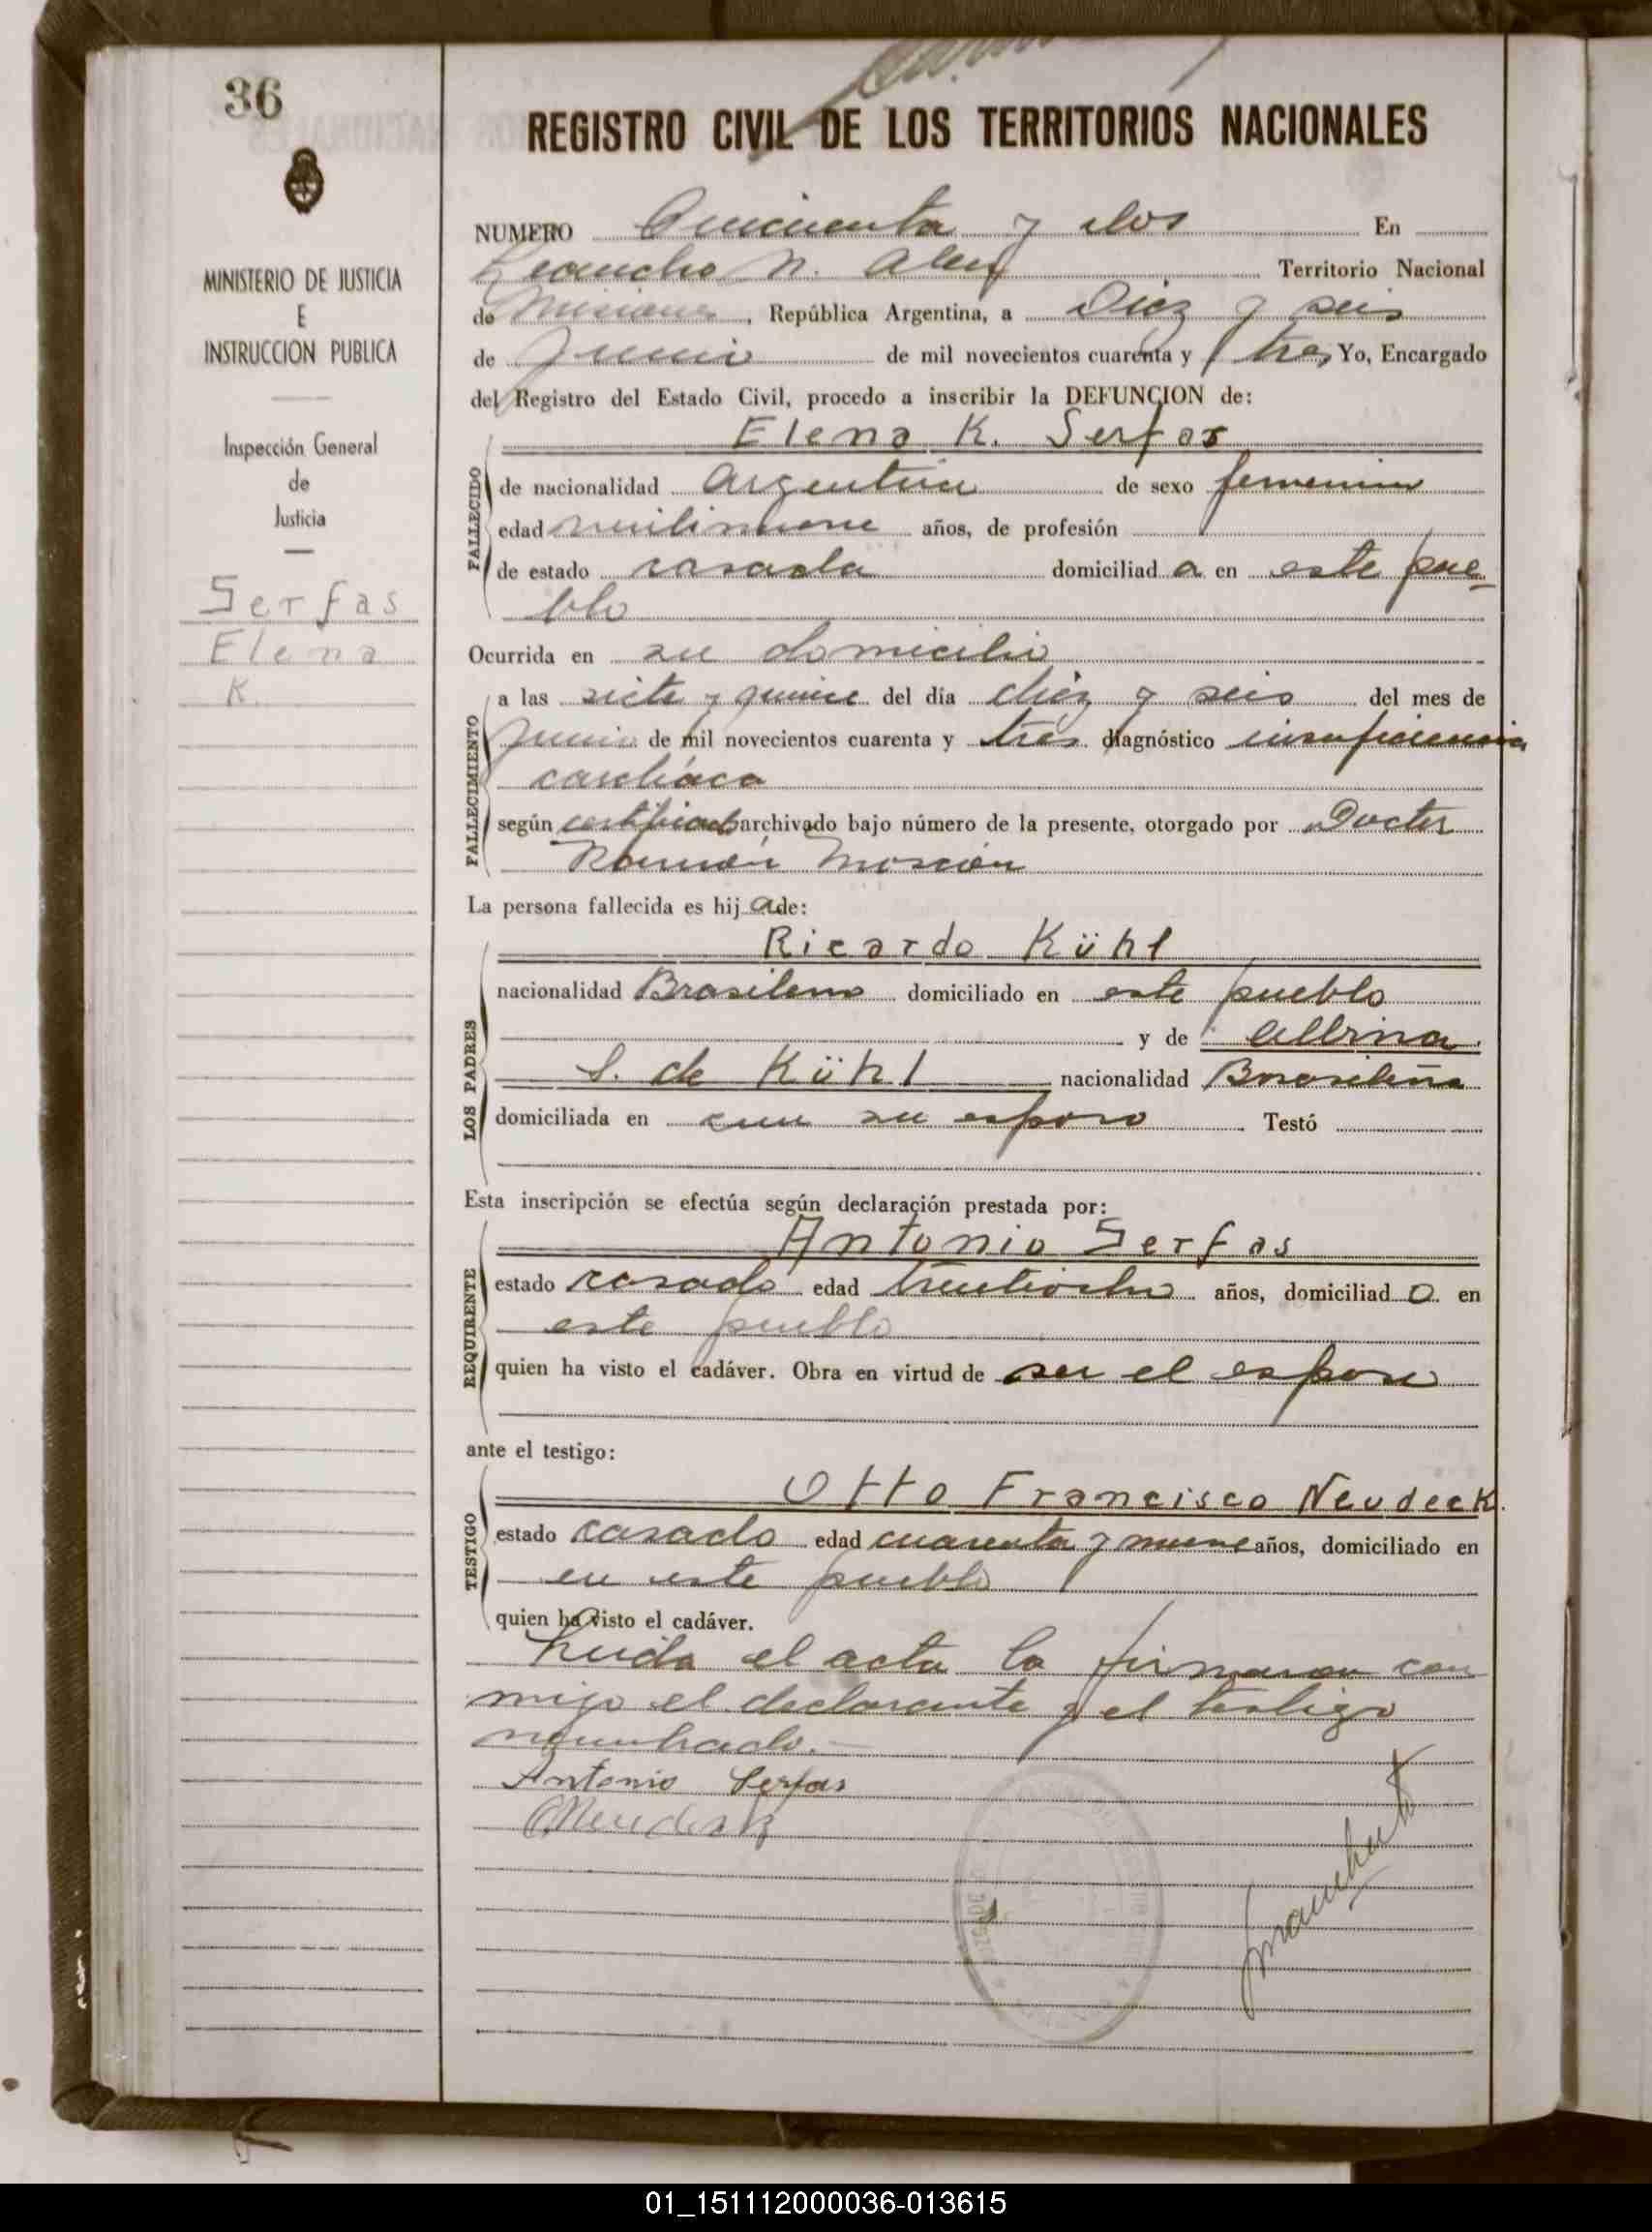 36
REGISTRO CIVIL DE LOS TERRITORIOS NACIONALES
MINISTERIO DE JUSTICIA
E
INSTRUCCION PUBLICA
Inspección General
de
Justicia
Serfas
Elena
K.
NUMERO Cincuenta y dos En
Leandro N. Alem Territorio Nacional
de Misiones, República Argentina, a Diez y seis
de Junio de mil novecientos cuarenta y tres Yo, Encargado
del Registro del Estado Civil, procedo a inscribir la DEFUNCION de:
FALLECIDO
Elena K. Serfas
de nacionalidad Argentina de sexo femenino
edad veintinueve años, de profesión
de estado casada domiciliad a en este pue-
blo
Ocurrida en su domicilio
FALLECIMIENTO
a las siete y quince del día diez y seis del mes de
Junio de mil novecientos cuarenta y tres diagnóstico insuficiencia
cardíaca
según certificado archivado bajo número de la presente, otorgado por Doctor
Román
La persona fallecida es hij a de:
LOS PADRES
Ricardo Kühl
nacionalidad Brasileno domiciliado en este pueblo
y de Albina
S. de Kühl nacionalidad Brasileña
domiciliada en con su esposo Testó
Esta inscripción se efectúa según declaración prestada por:
REQUIRENTE
Antonio Serfas
estado casado edad treintiocho años, domiciliad o en
este pueblo
quien ha visto el cadáver. Obra en virtud de ser el esposo
ante el testigo:
TESTIGO
Otto Francisco Neudeck.
estado casado edad cuarenta y nueve años, domiciliado en
en este pueblo
quien ha visto el cadáver.
Leida el acta la firmaron con
migo el declarante y el testigo
nombrado.-
Antonio Serfas
ONeudeck
01_151112000036-013615